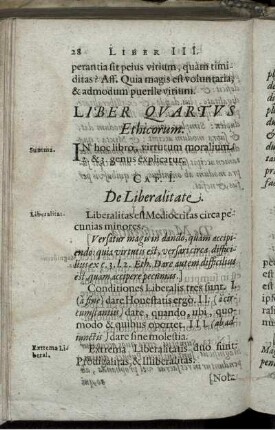 28 LIBER III.
perantia sit peius vitium, quàm timi-
ditas? Aff. Quia magis est voluntaria,
& admodum puerile vitium.
LIBER QVARTVS
Ethicorum.
Summa.
IN hoc libro, virtutum moralium,
2. & 3. genus explicatur.
CAP. I.
De Liberalitate.
Liberalitas.
Liberalitas est Mediocritas circa pe-
cunias minores.
Versatur magis in dando, quàm accipi-
endo: quia virtutis est, versari circa diffici-
lius ex c. 3. l. 2. Eth. Dare autem difficilius
est, quàm accipere pecunias.
Conditiones Liberalis tres sunt. I.
(à fine) dare Honestatis ergò. II. (à cir-
cumstantiis) dare, quando, ubi, quo-
modo & quibus oportet. III. (ab ad-
iunctis) dare sine molestia.
Extrema Li-
beral.
Extrema Liberalitatis duo sunt
Prodigalitas, & Illiberalitas.
[Nota: